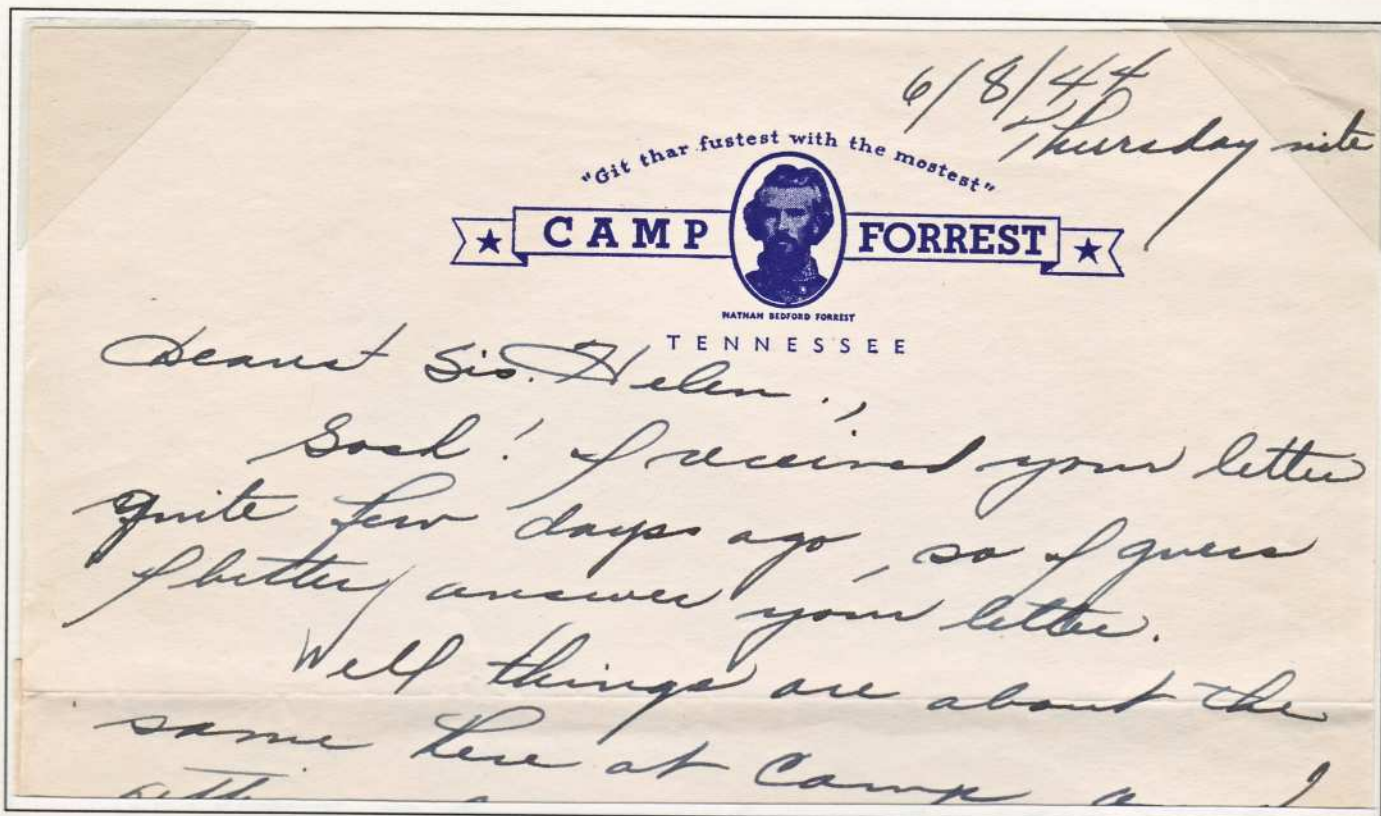 6/8/44
Thursday nite
"Git thar fustest with the mostest"
CAMP FORREST
NATHAN BEDFORD FORREST
TENNESSEE
Dearest Sis. Helen.,
Gosh! I received your letter
quite few days ago, so I guess
I better answer your letter.
Well things are about the
same here at Camp